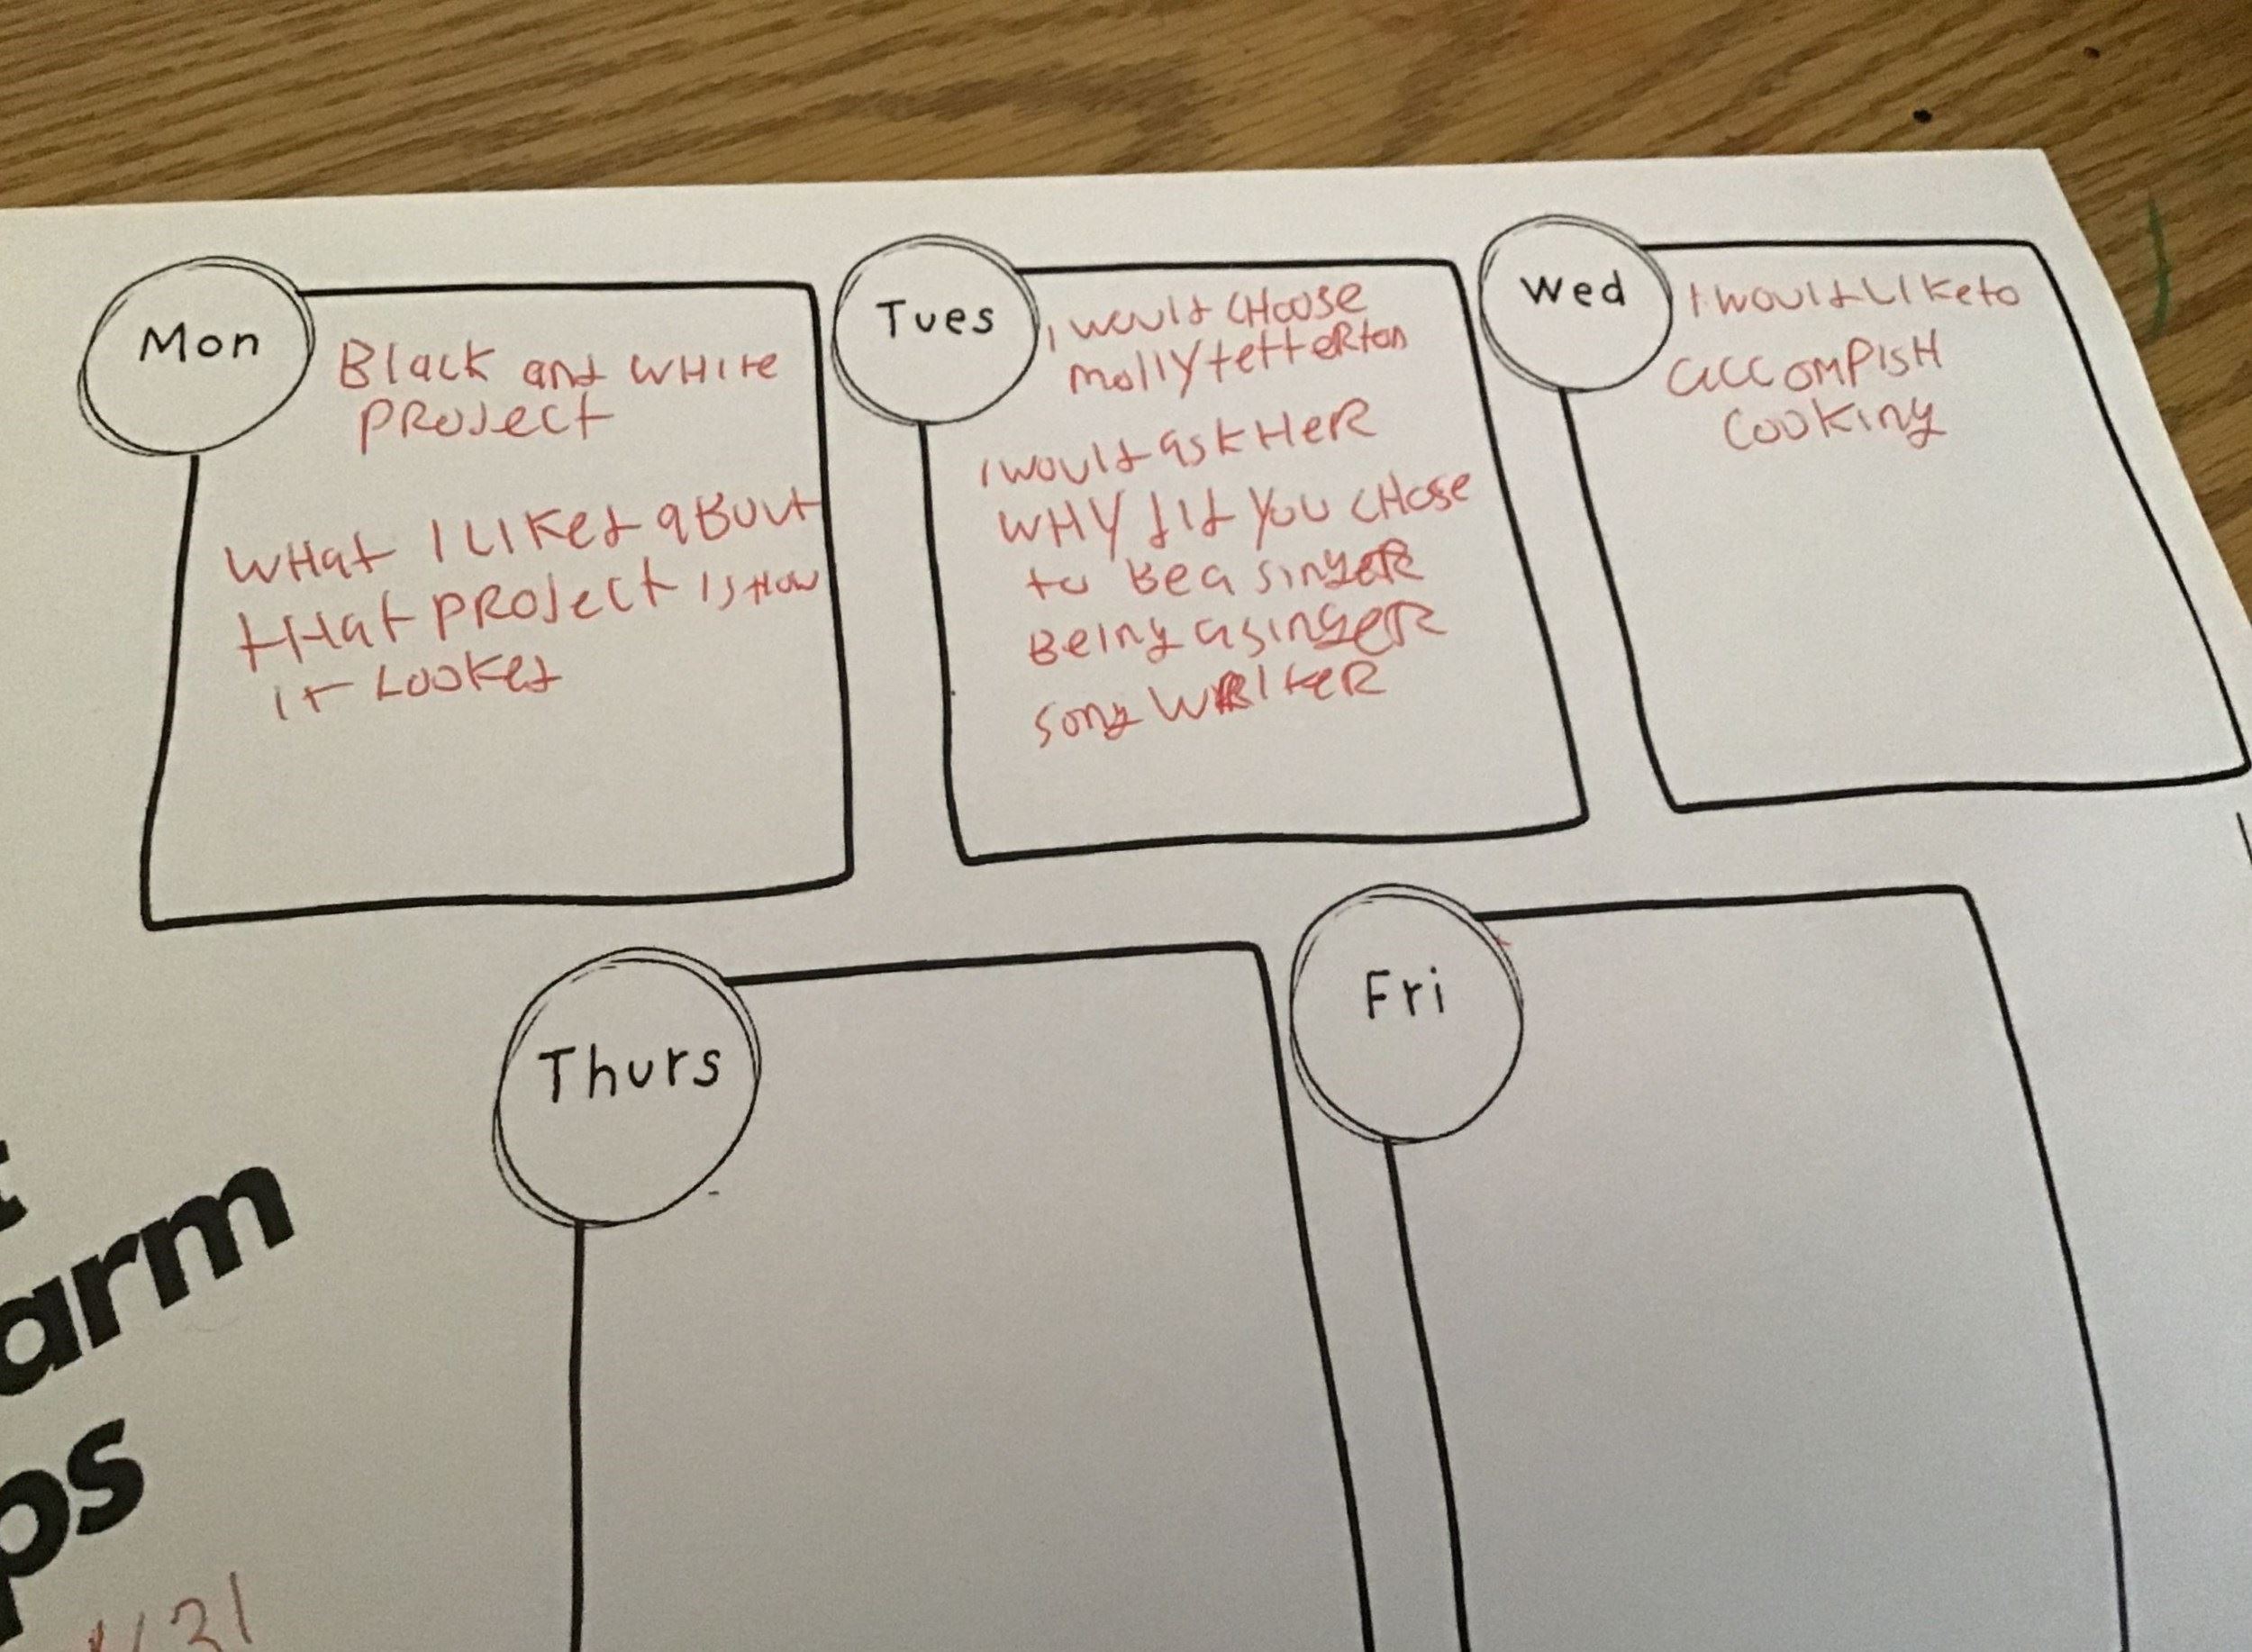 Mon
Black and WHite
PRoject
WHat I Liked aBout
tHat PRoject is How
it Looked
Tues
I would CHoose
mollytetteRton
I would ask HeR
WHY did You CHose
to Be a singeR
Being a singeR
song WRiteR
Wed
I would Like to
accompisH
cooking
Thurs
Fri
arm
ps
31